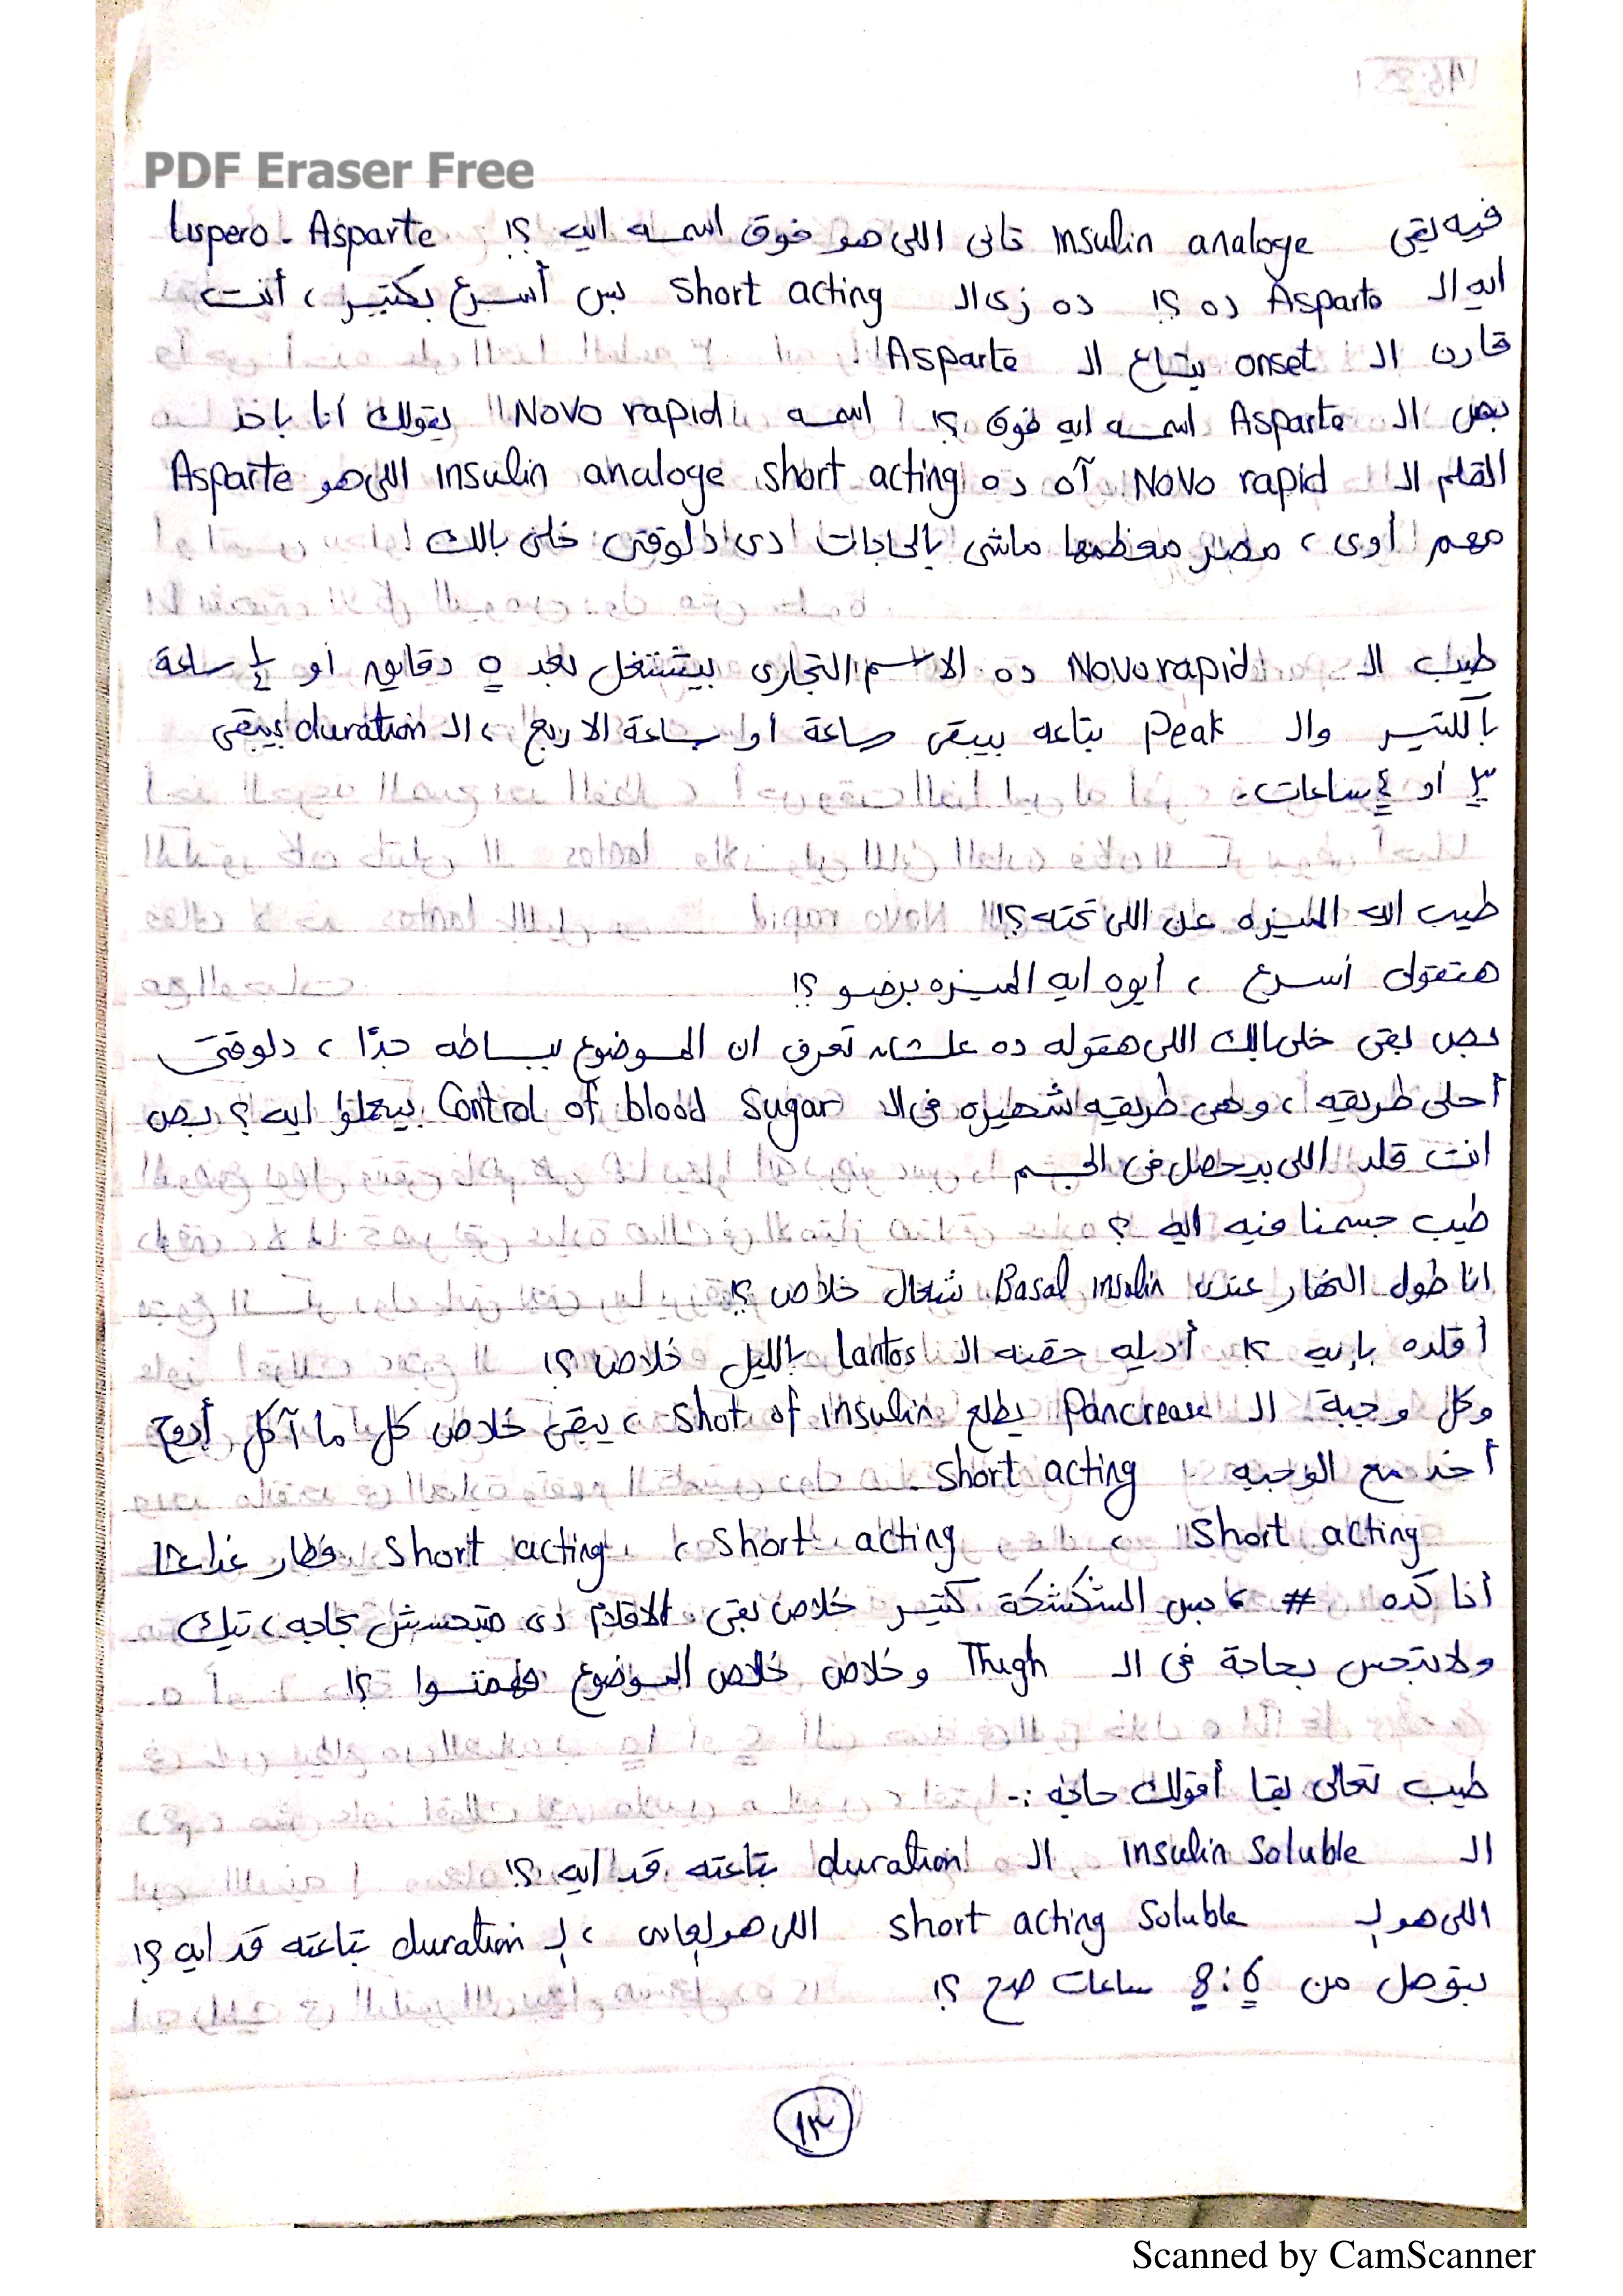 PDF Eraser Free
فيه بقى insulin analoge تانى اللى هو فوق اسمه ايه ؟! Lispero - Asparte
ايه الـ Asparte ده ؟! ده زى الـ short acting بس أسرع بكتير ، أنت
قارن الـ onset بتاع الـ Asparte
بص الـ Asparte اسمه ايه فوق ؟! اسمه "Novo rapid" يقولك أنا باخد
القلم الـ Novo rapid آه ده insulin analoge short acting اللى هو Asparte
مهم أوى ، مصر معظمها ماشى بالحاجات دى دلوقتى خلى بالك
طيب الـ Novorapid ده الاسم التجارى بيشتغل بعد ٥ دقايق أو ١/٤ ساعة
بالكتير والـ Peak بتاعه بيبقى ساعة أو ساعة الا ربع ، الـ duration بيبقى
٣ أو ٤ ساعات.
طيب ايه الميزه عن اللى تحته ؟!
هتقولى أسرع ، أيوه ايه الميزه برضو ؟!
بص بقى خلى بالك اللى هقوله ده علشان تعرف ان الموضوع ببساطه جدًا ، دلوقتى
أحلى طريقه ، وهى طريقه شهيره فى الـ Control of blood sugar بيعملوا ايه ؟ بص
انت قلد اللى بيحصل فى الجسم
طيب جسمنا فيه ايه ؟
انا طول النهار عندى Basal insulin شغال خلاص ؟!
أقلده بإيه ؟! أديله حقنه الـ lantos بالليل خلاص ؟!
وكل وجبة الـ Pancrease يطلع shot of insulin ، يبقى خلاص كل ما آكل أروح
أخد مع الوجبه short acting
short acting ، short acting ، short acting فطار غدا عشا
أنا كده # ، بس الشكشكة كتير خلاص بقى الاقلام دى مبتحسش بحاجه ، تيك
ولا بتحس بحاجة فى الـ Thigh وخلاص خلاص الموضوع فهمتوا ؟!
طيب تعالى بقا أقولك حاجه :-
الـ insulin soluble الـ duration بتاعته قد ايه ؟!
اللى هو الـ short acting soluble اللى هو ، الـ duration بتاعته قد ايه ؟!
بتوصل من 6 : 8 ساعات صح ؟!
١٣
Scanned by CamScanner